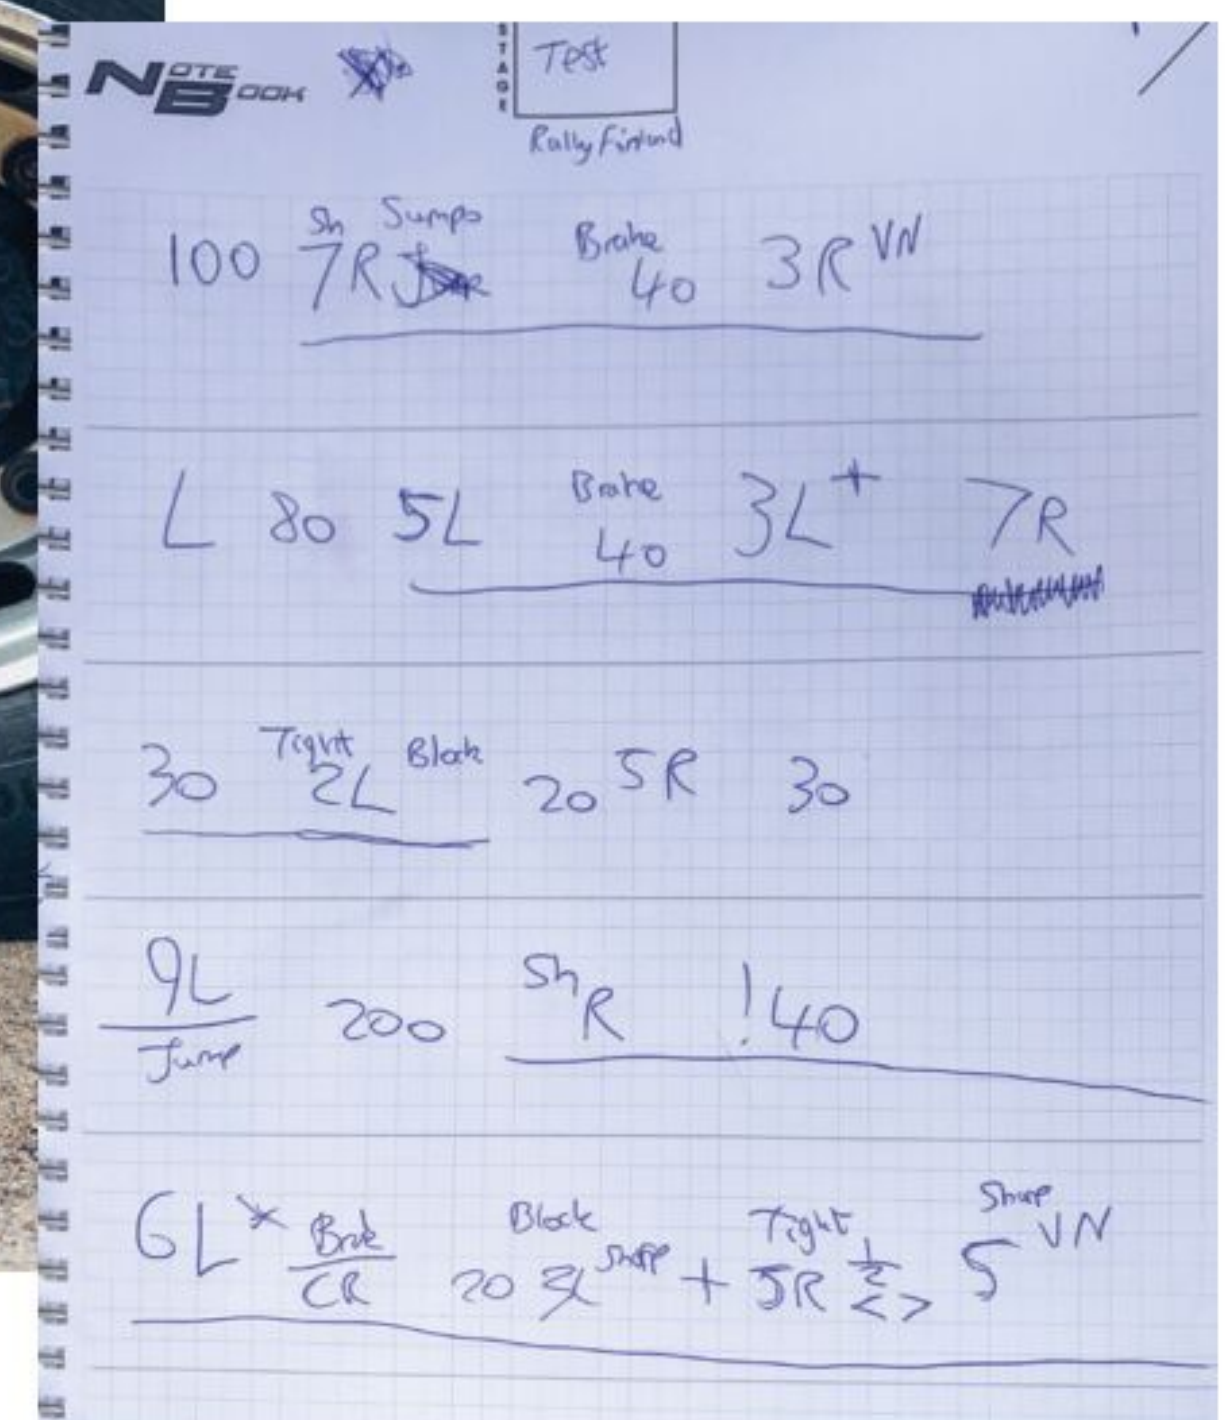 NOTE BOOK
STAGE
Test
Rally Finland
Sh Jumps
100 7R
Brake
40 3R VN
L 80 5L Brake 40 3L+ 7R
30 Tight 2L Block 20 5R 30
9L
Jump
200 Sh R !40
6L Brake
CR
Block
20 3L Sharp + Tight 5R 1/2 < > Sharp 5 VN